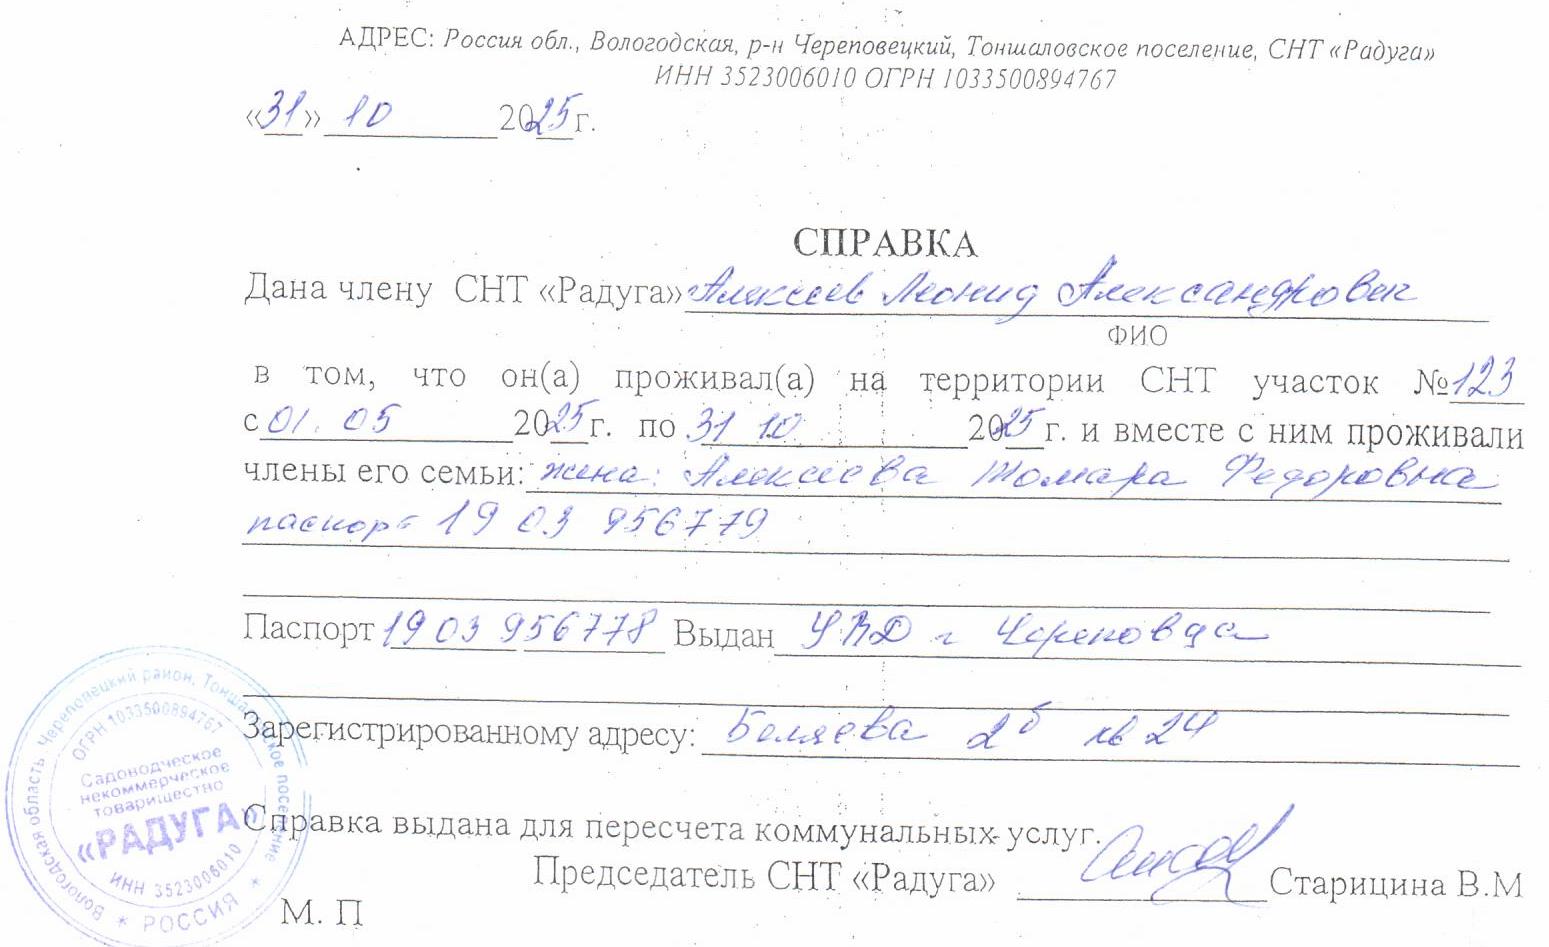 АДРЕС: Россия обл., Вологодская, р-н Череповецкий, Тоншаловское поселение, СНТ «Радуга»
ИНН 3523006010 ОГРН 1033500894767
«31» 10 2025г.
СПРАВКА
Дана члену СНТ «Радуга» Алексеев Леонид Александрович
ФИО
в том, что он(а) проживал(а) на территории СНТ участок №123
с 01.05 2025г. по 31 10 2025г. и вместе с ним проживали
члены его семьи: жена: Алексеева Томара Федоровна
паспорт 19 03 956779
Паспорт 19 03 956778 Выдан УВД г Череповца
Зарегистрированному адресу: Беляева 2б кв 24
Справка выдана для пересчета коммунальных услуг.
Председатель СНТ «Радуга» Старицина В.М
М. П
Вологодская область Череповецкий район, Тоншаловское поселение
ОГРН 1033500894767
Садоводческое
некоммерческое
товарищество
«РАДУГА»
ИНН 3523006010
* РОССИЯ *